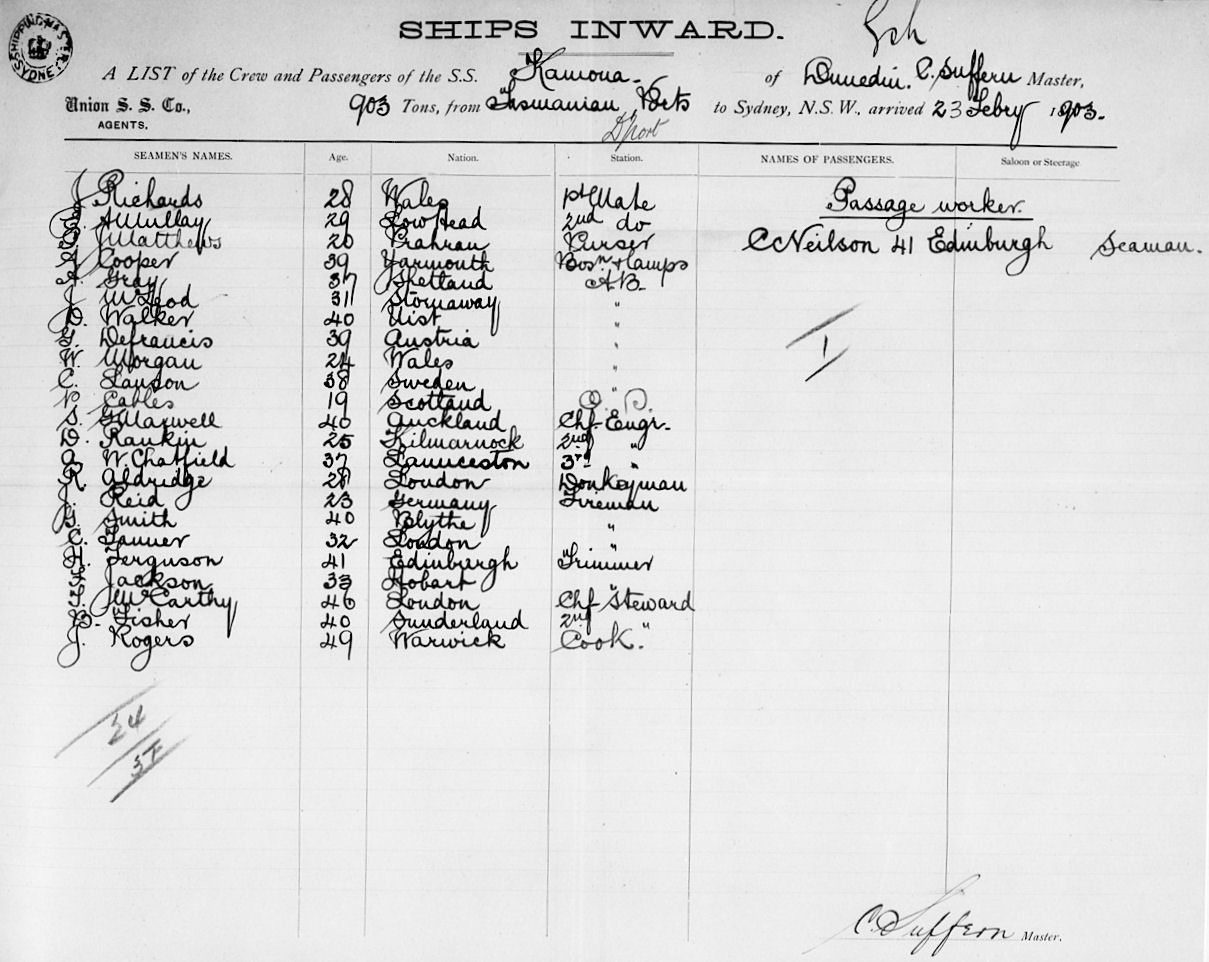 SHIPPING MASTER SYDNEY
SHIPS INWARD.
A LIST of the Crew and Passengers of the S.S. Kamona. of Dunedin. C. Suffern Master,
Union S. S. Co., 903 Tons, from Tasmanian Ports to Sydney, N.S.W., arrived 23 Febry 1903.
AGENTS. D'port
SEAMEN'S NAMES. Age. Nation. Station. NAMES OF PASSENGERS. Saloon or Steerage.
J Richards 28 Wales 1st Mate Passage worker.
A Mullay 29 Low Head 2nd do
J Matthews 20 Prahran Purser C Neilson 41 Edinburgh Seaman.
Cooper 39 Yarmouth Bosn & Lamps
Gray 37 Shetland A.B.
J McLeod 31 Stornaway "
D. Walker 40 Uist "
G. Defrancis 39 Austria "
W. Morgan 24 Wales "
C. Lauson 38 Sweden "
Eables 19 Scotland O.S.
S. G Maxwell 40 Auckland Chf Engr.
D. Rankin 25 Kilmarnock 2nd "
A. W. Chatfield 37 Launceston 3rd "
R. Aldridge 28 London Donkeyman
J. Reid 23 Germany Fireman
G. Smith 40 Blythe "
C. Tanner 32 London "
H. Ferguson 41 Edinburgh Trimmer
F. Jackson 33 Hobart "
J McCarthy 46 London Chf Steward
B. Fisher 40 Sunderland 2nd "
J. Rogers 49 Warwick Cook.
1
24
C. Suffern Master.